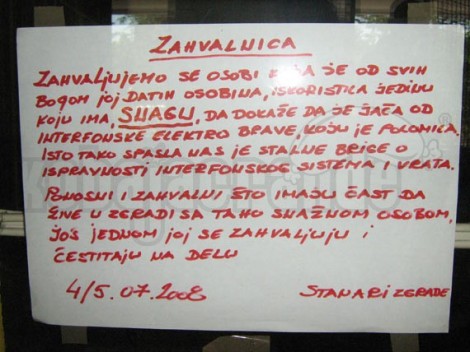 ZAHVALNICA
ZAHVALJUJEMO SE OSOBI KOJA JE OD SVIH
BOGOM JOJ DATIH OSOBINA, ISKORISTILA JEDINU
KOJU IMA, SNAGU, DA DOKAŽE DA JE JAČA OD
INTERFONSKE ELEKTRO BRAVE, KOJU JE POLOMILA.
ISTO TAKO SPASLA NAS JE STALNE BRIGE O
ISPRAVNOSTI INTERFONSKOG SISTEMA I VRATA.
PONOSNI I ZAHVALNI, ŠTO IMAJU ČAST DA
ŽIVE U ZGRADI SA TAKO SNAŽNOM OSOBOM,
JOŠ JEDNOM JOJ SE ZAHVALJUJU I
ČESTITAJU NA DELU
4/5.07.2008 STANARI ZGRADE